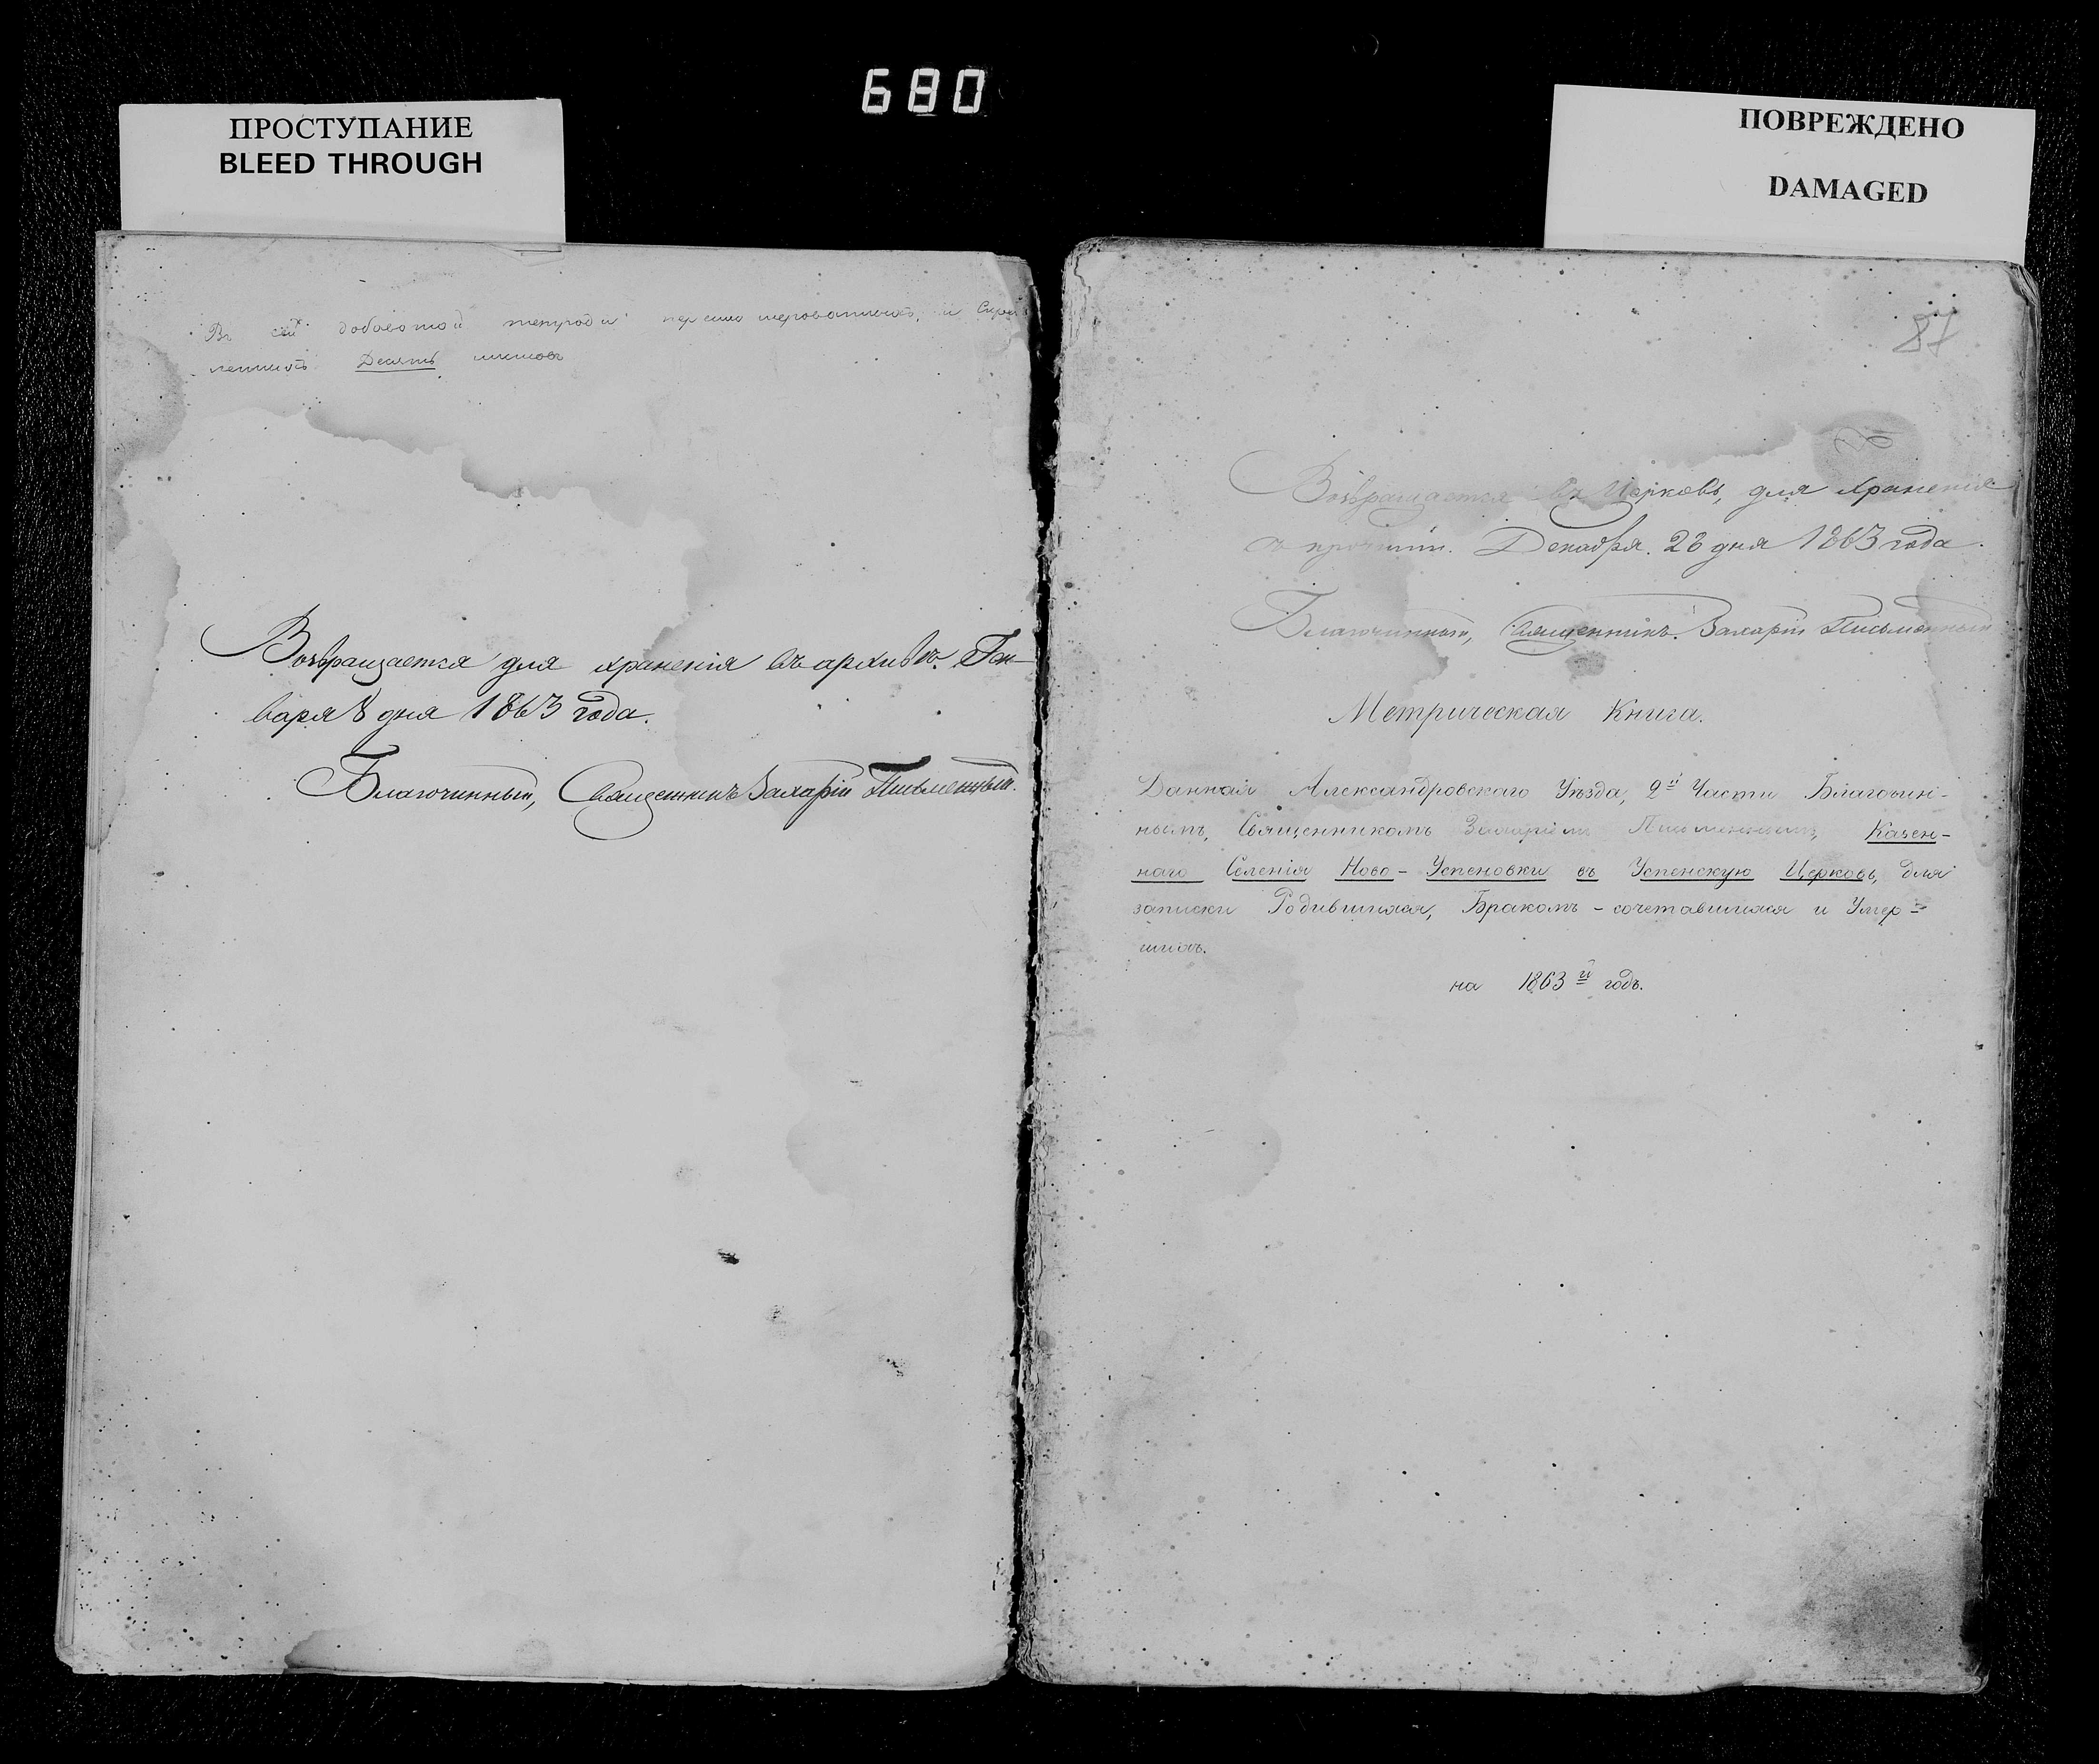 680
ПРОСТУПАНИЕ
BLEED THROUGH
ПОВРЕЖДЕНО
DAMAGED
Въ сей добавочной тетради перенумерованныхъ и Скреп
ленныхъ Десять листовъ
Возвращается для храненія въ архивъ. Ген-
варя 8 дня 1863 года.
Благочинный, Священникъ Захарій Письменный.
87
Возвращается въ Церковь, для храненія
Декабря. 23 дня 1863 года.
Благочинный, Священникъ Захарій Письменный
Метрическая Книга.
Данная Александровскаго Уѣзда, 2й Части Благочин-
нымъ, Священникомъ Захаріемъ Письменнымъ, Казен-
наго Селенія Ново-Успеновки въ Успенскую Церковь, для
записки Родившихся, Бракомъ-сочетавшихся и Умер=
шихъ.
на 1863й годъ.